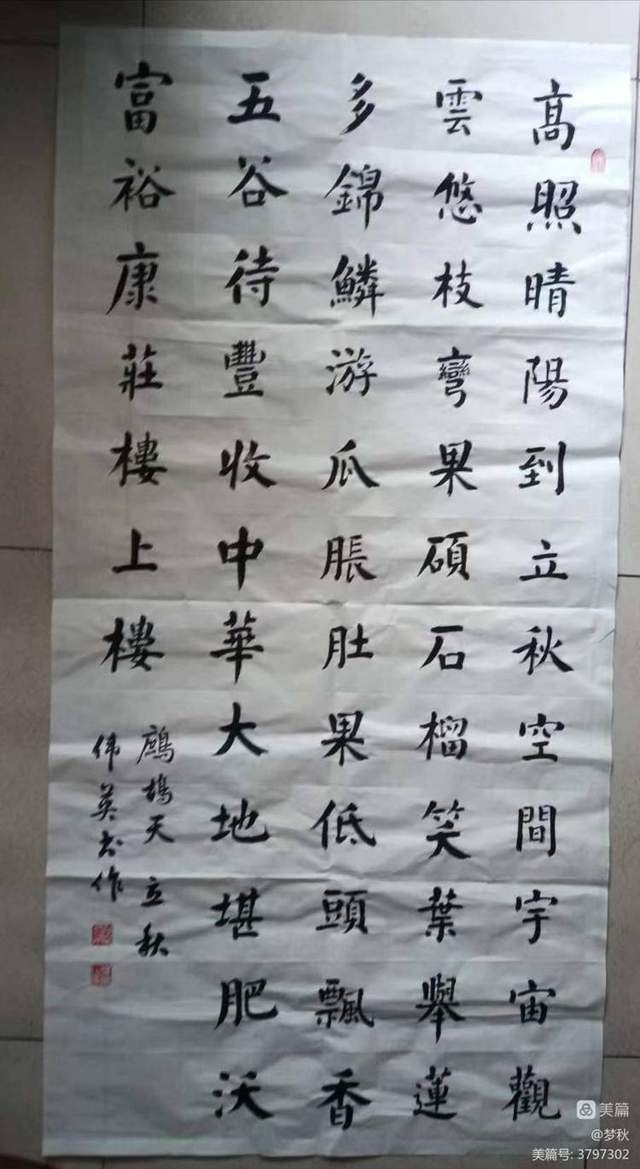 高照晴陽到立秋空間宇宙觀
雲悠枝彎果碩石榴笑葉舉蓮
多錦鱗游瓜脹肚果低頭飄香
五谷待豐收中華大地堪肥沃
富裕康莊樓上樓
鷓鴣天 立秋
伟英书作
美篇
@梦秋
美篇号: 3797302